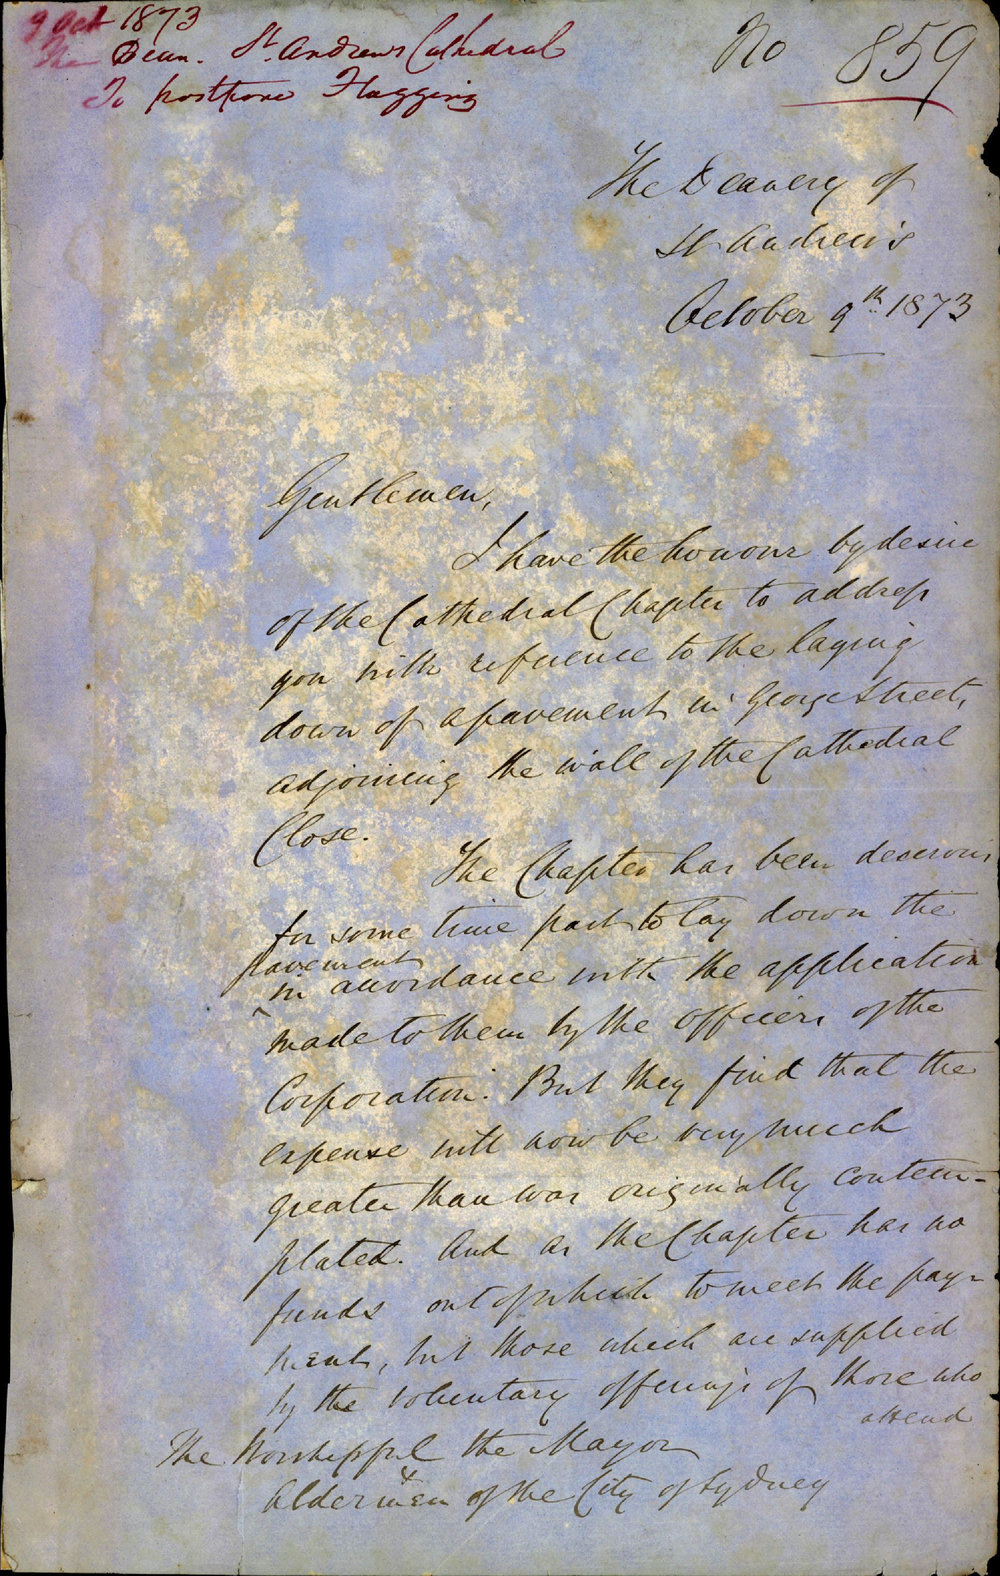 9 Oct 1873
The Dean. St. Andrews Cathedral
To postpone Flagging
No 859
The Deanery of
St Andrew's
October 9th 1873
Gentlemen,
I have the honour by desire
of the Cathedral Chapter to address
you with reference to the laying
down of a pavement in George Street,
adjoining the wall of the Cathedral
Close.
The Chapter has been desirous
for some time past to lay down the
pavement
in accordance with the application
made to them by the officers of the
Corporation. But they find that the
expense will now be very much
greater than was originally contem-
plated. And as the Chapter has no
funds out of which to meet the pay-
ment, but those which are supplied
by the voluntary offerings of those who
attend
The Worshipful the Mayor
&
Aldermen of the City of Sydney